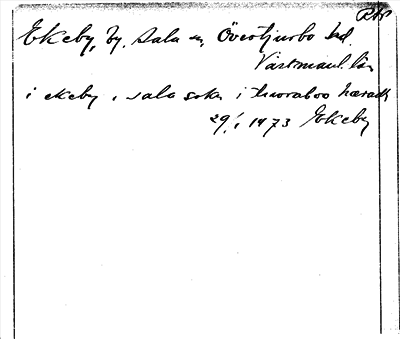 PRP
Ekeby, by, Sala sn, Övertjurbo hd,
Västmanl. län
i ekeby i sala sokn i thioraboo hæradh
29/1 1473 Ekeby